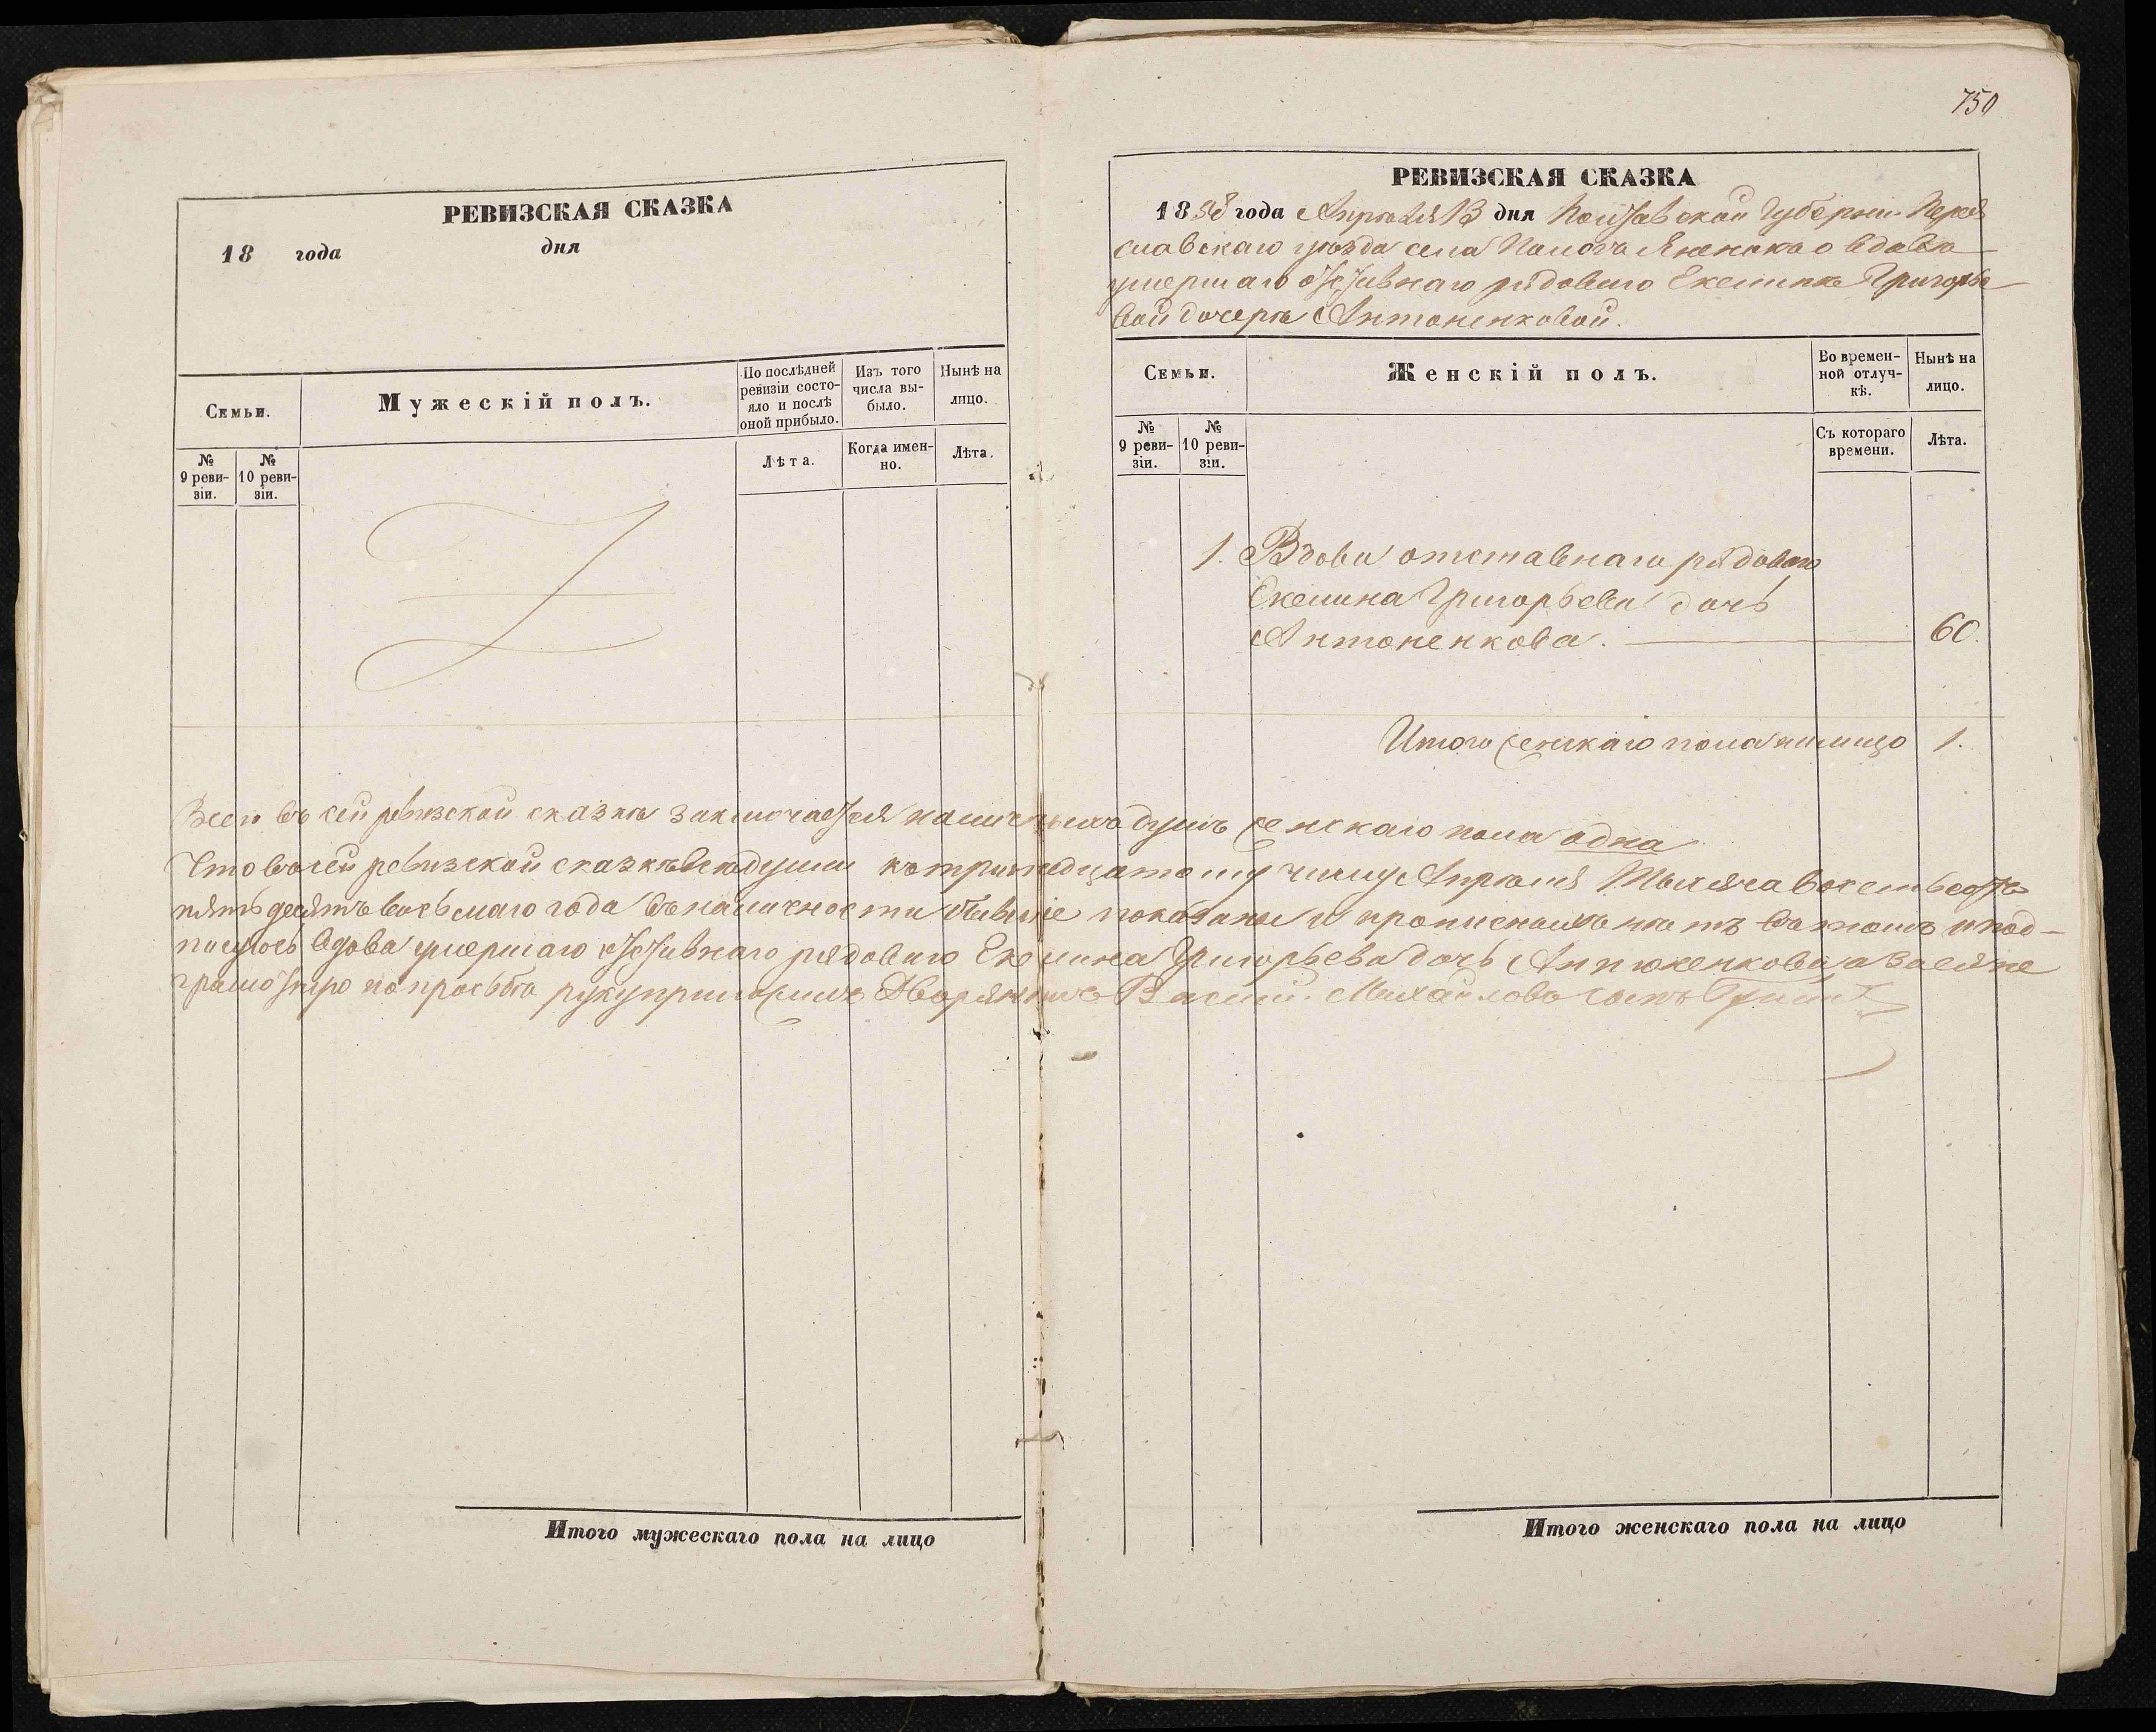 РЕВИЗСКАЯ СКАЗКА
18 года дня
Семьи.
Мужескій полъ.
По послѣдней ревизіи состояло и послѣ оной прибыло.
Изъ того числа выбыло.
Нынѣ на лицо.
№ 9 ревизіи.
№ 10 ревизіи.
Лѣта.
Когда именно.
Лѣта.
750
РЕВИЗСКАЯ СКАЗКА
1858 года Апрѣля 13 дня Полтавской Губерніи Перея
славскаго уѣзда села вдовы
умершаго отставнаго рядоваго Екелины Григорье
вой дочери Антоненковой.
Семьи.
Женскій полъ.
Во временной отлучкѣ.
Нынѣ на лицо.
№ 9 ревизіи.
№ 10 ревизіи.
Съ котораго времени.
Лѣта.
1. Вдова отставнаго рядоваго
Екелина Григорьева дочь
Антоненкова. 60.
Итого женскаго пола на лицо 1.
Всего въ сей ревизской сказкѣ заключается наличныхъ душъ женскаго пола одна
Что въ сей ревизской сказкѣ всѣ души къ тринадцатому числу Апрѣля Тысяча восемьсотъ
пятьдесятъ восьмаго года въ наличности бывшіе показаны и прописныхъ нѣтъ въ томъ и под-
писуюсь вдова умершаго отставнаго рядоваго Екелина Григорьева дочь Антоненкова, а за ея не
грамотную по прозьбѣ руку приложилъ Дворянинъ Василій Михайловъ сынъ
Итого мужескаго пола на лицо
Итого женскаго пола на лицо